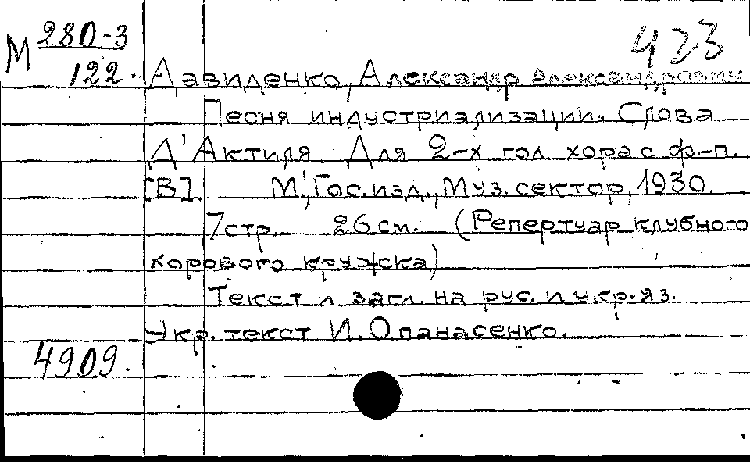 М 280-3
122.
423
Давиденко, Александр Александрович
Песня индустриализации. Слова
Д'Актиля. Для 2-х гол. хора с ф-п.
[В]. М., Гос. изд., Муз. сектор, 1930.
7 стр. 26 см. (Репертуар клубного
хорового кружка)
Текст и загл. на рус. и укр. яз.
Укр. текст И. Опанасенко.
4909.